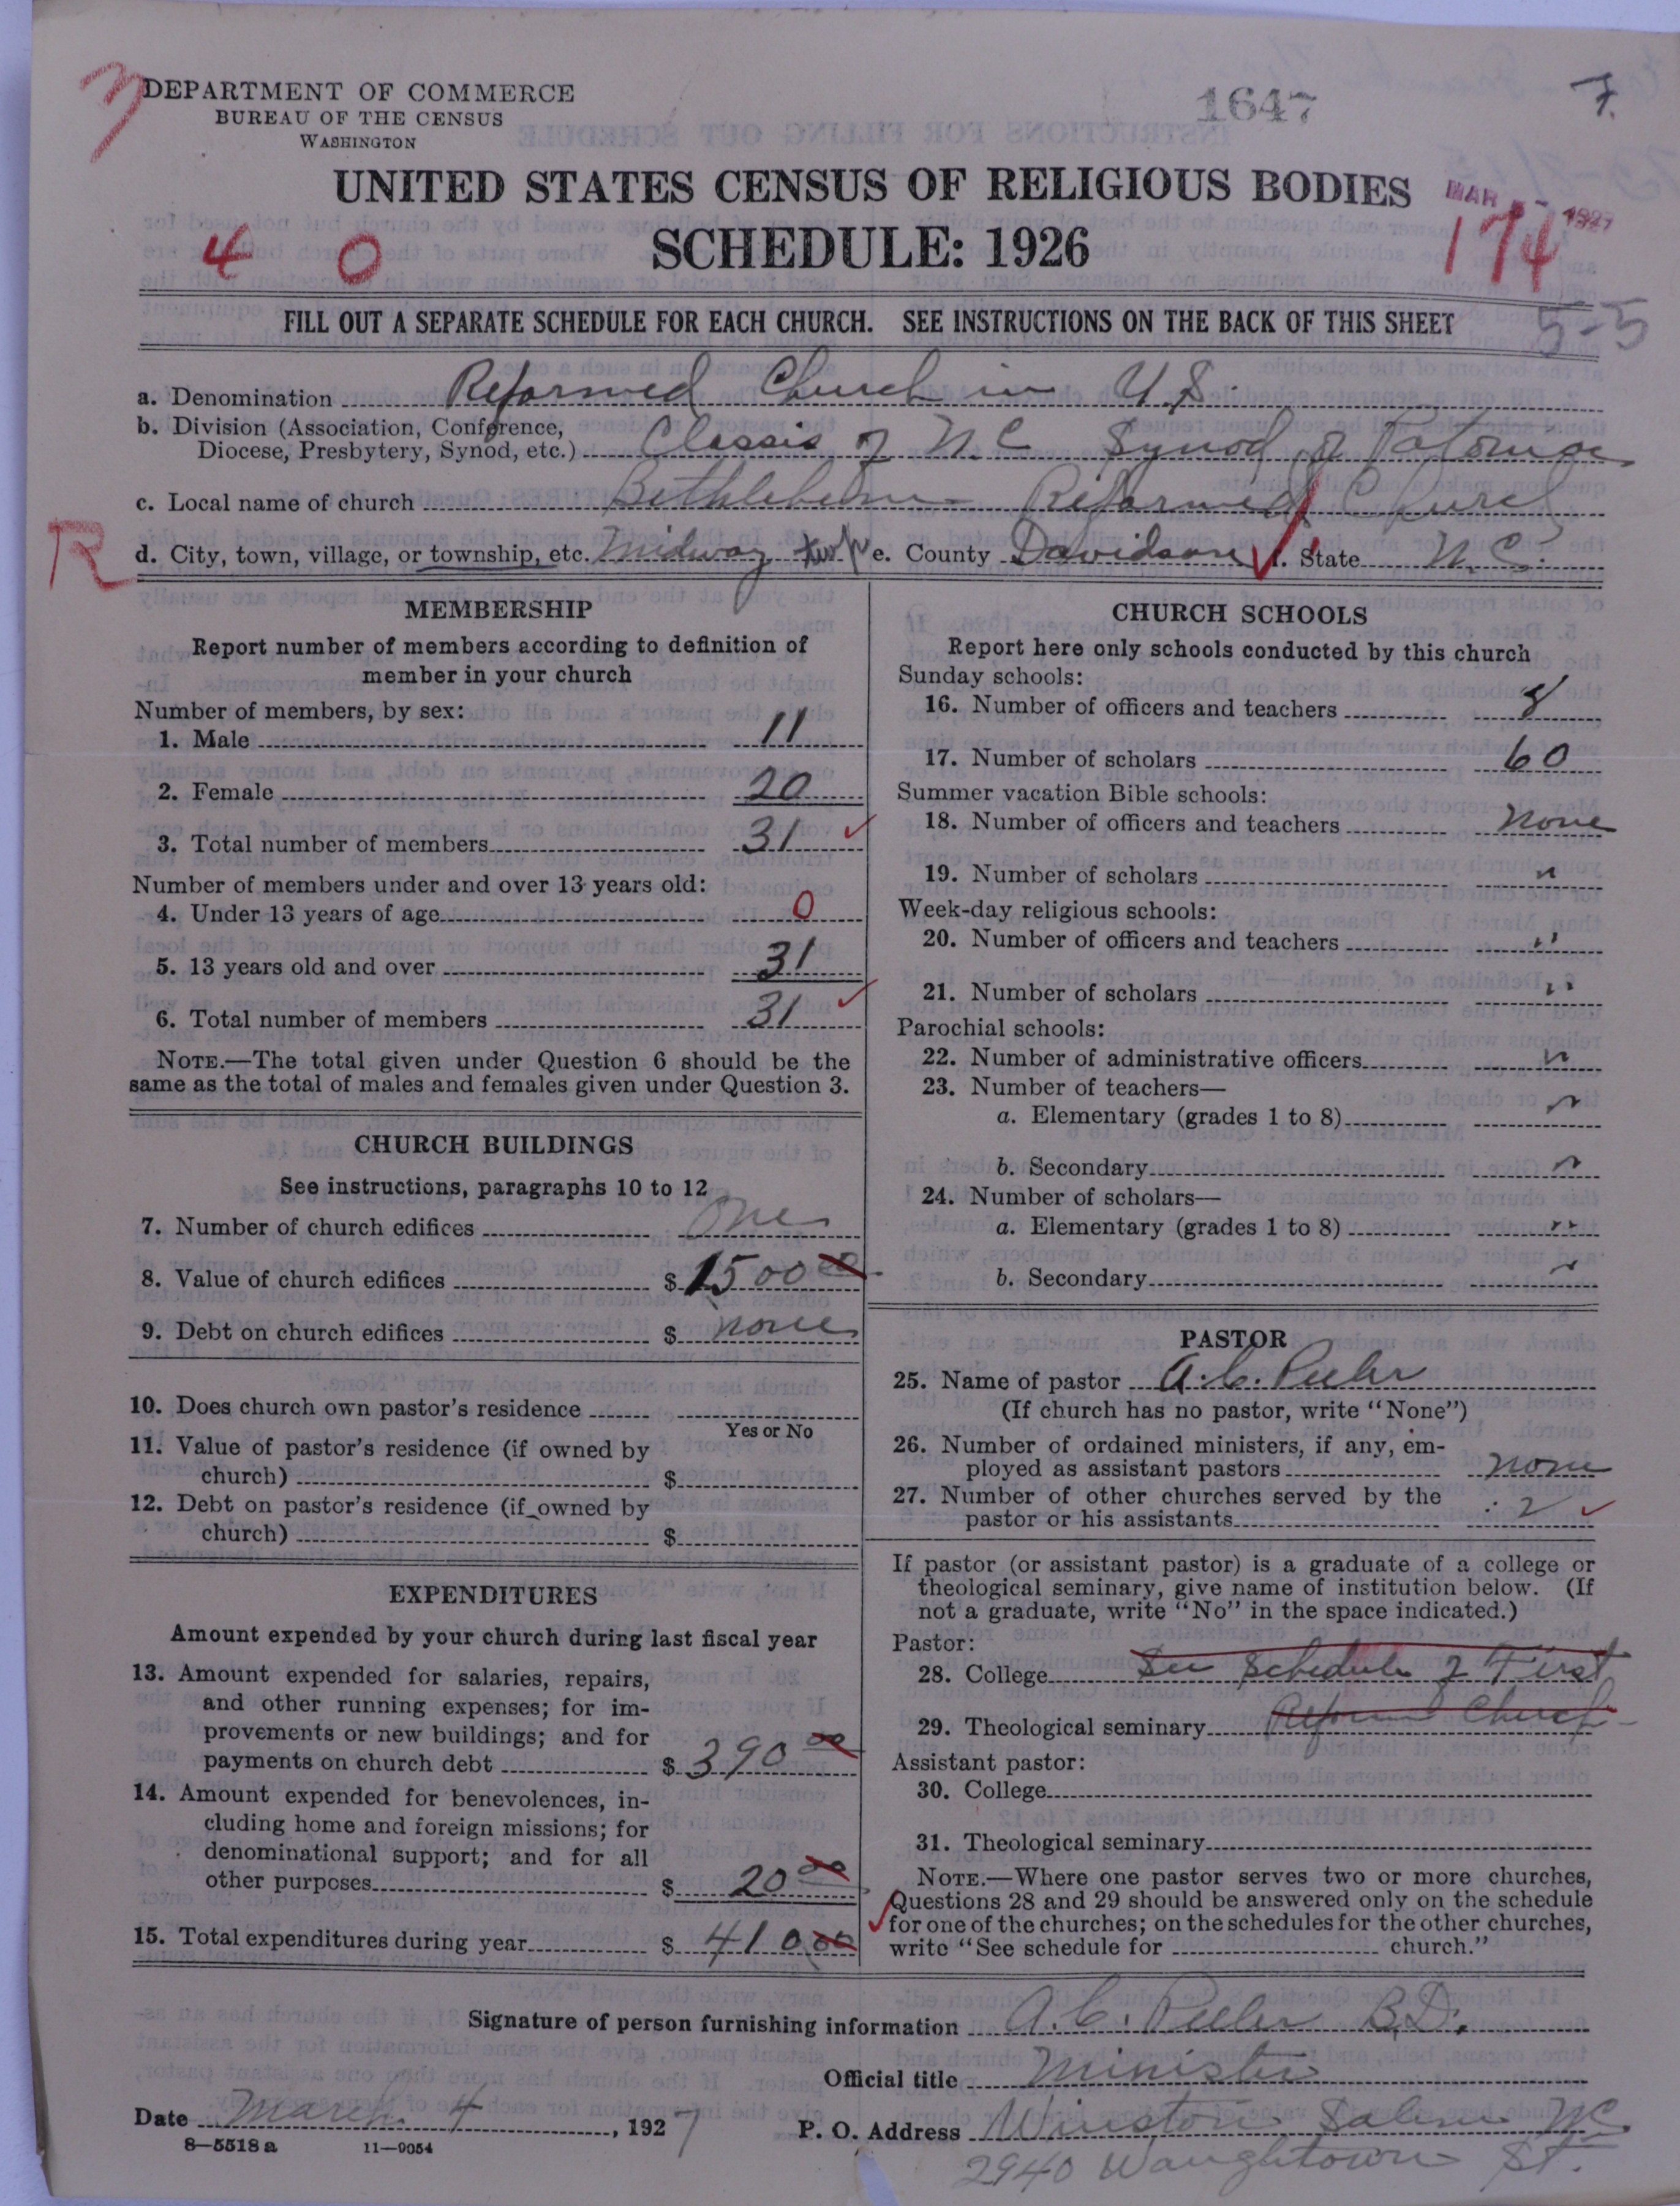 DEPARTMENT OF COMMERCE
BUREAU OF THE CENSUS
WASHINGTON
1647
7.
UNITED STATES CENSUS OF RELIGIOUS BODIES
SCHEDULE: 1926
MAR 1927
174
4 0
5-5
FILL OUT A SEPARATE SCHEDULE FOR EACH CHURCH. SEE INSTRUCTIONS ON THE BACK OF THIS SHEET
a. Denomination Reformed Church in U.S.
b. Division (Association, Conference, Diocese, Presbytery, Synod, etc.) Classis of N.C. Synod of Potomac
c. Local name of church Bethlehem Reformed Church
R
d. City, town, village, or township, etc. Midway twp e. County Davidson f. State N.C.
MEMBERSHIP
Report number of members according to definition of
member in your church
Number of members, by sex:
1. Male 11
2. Female 20
3. Total number of members 31
Number of members under and over 13 years old:
4. Under 13 years of age 0
5. 13 years old and over 31
6. Total number of members 31
NOTE.—The total given under Question 6 should be the
same as the total of males and females given under Question 3.
CHURCH BUILDINGS
See instructions, paragraphs 10 to 12
7. Number of church edifices One
8. Value of church edifices $ 1500 00
9. Debt on church edifices $ none
10. Does church own pastor's residence
Yes or No
11. Value of pastor's residence (if owned by
church) $
12. Debt on pastor's residence (if owned by
church) $
EXPENDITURES
Amount expended by your church during last fiscal year
13. Amount expended for salaries, repairs,
and other running expenses; for im-
provements or new buildings; and for
payments on church debt $ 390 00
14. Amount expended for benevolences, in-
cluding home and foreign missions; for
denominational support; and for all
other purposes $ 20 00
15. Total expenditures during year $ 410 00
CHURCH SCHOOLS
Report here only schools conducted by this church
Sunday schools:
16. Number of officers and teachers 8
17. Number of scholars 60
Summer vacation Bible schools:
18. Number of officers and teachers none
19. Number of scholars "
Week-day religious schools:
20. Number of officers and teachers "
21. Number of scholars "
Parochial schools:
22. Number of administrative officers "
23. Number of teachers—
a. Elementary (grades 1 to 8) "
b. Secondary "
24. Number of scholars—
a. Elementary (grades 1 to 8) "
b. Secondary "
PASTOR
25. Name of pastor A. C. Peeler
(If church has no pastor, write "None")
26. Number of ordained ministers, if any, em-
ployed as assistant pastors none
27. Number of other churches served by the
pastor or his assistants 2
If pastor (or assistant pastor) is a graduate of a college or
theological seminary, give name of institution below. (If
not a graduate, write "No" in the space indicated.)
Pastor:
28. College See Schedule of First
29. Theological seminary Reformed Church
Assistant pastor:
30. College
31. Theological seminary
NOTE.—Where one pastor serves two or more churches,
Questions 28 and 29 should be answered only on the schedule
for one of the churches; on the schedules for the other churches,
write "See schedule for church."
Signature of person furnishing information A. C. Peeler B.D.
Official title Minister
Date March 4, 1927 P. O. Address Winston Salem N.C.
8—5518 a 11—9054
2940 Waughtown St.